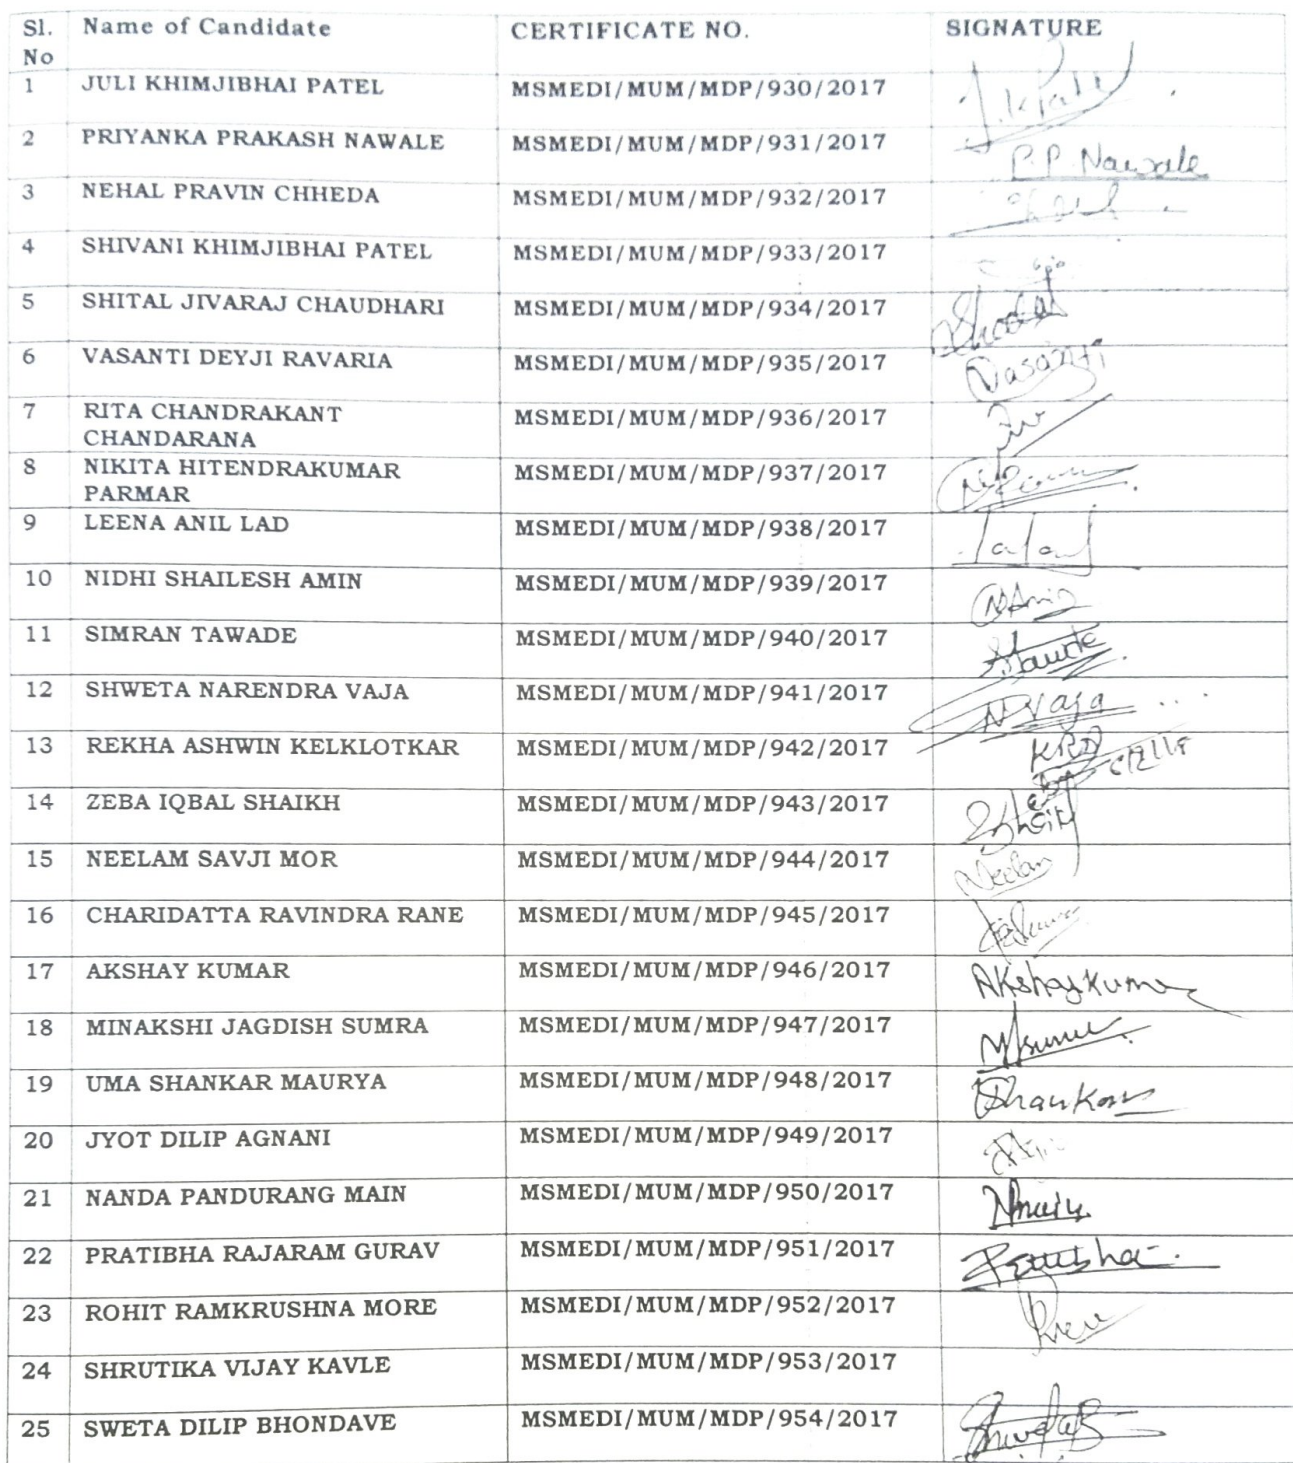 Sl. No Name of Candidate CERTIFICATE NO. SIGNATURE
1 JULI KHIMJIBHAI PATEL MSMEDI/MUM/MDP/930/2017
2 PRIYANKA PRAKASH NAWALE MSMEDI/MUM/MDP/931/2017 P.P. Nawale
3 NEHAL PRAVIN CHHEDA MSMEDI/MUM/MDP/932/2017
4 SHIVANI KHIMJIBHAI PATEL MSMEDI/MUM/MDP/933/2017
5 SHITAL JIVARAJ CHAUDHARI MSMEDI/MUM/MDP/934/2017
6 VASANTI DEYJI RAVARIA MSMEDI/MUM/MDP/935/2017 Vasanti
7 RITA CHANDRAKANT MSMEDI/MUM/MDP/936/2017
CHANDARANA
8 NIKITA HITENDRAKUMAR MSMEDI/MUM/MDP/937/2017
PARMAR
9 LEENA ANIL LAD MSMEDI/MUM/MDP/938/2017
10 NIDHI SHAILESH AMIN MSMEDI/MUM/MDP/939/2017
11 SIMRAN TAWADE MSMEDI/MUM/MDP/940/2017
12 SHWETA NARENDRA VAJA MSMEDI/MUM/MDP/941/2017
13 REKHA ASHWIN KELKLOTKAR MSMEDI/MUM/MDP/942/2017
14 ZEBA IQBAL SHAIKH MSMEDI/MUM/MDP/943/2017
15 NEELAM SAVJI MOR MSMEDI/MUM/MDP/944/2017 Neelam
16 CHARIDATTA RAVINDRA RANE MSMEDI/MUM/MDP/945/2017
17 AKSHAY KUMAR MSMEDI/MUM/MDP/946/2017 Akshay Kumar
18 MINAKSHI JAGDISH SUMRA MSMEDI/MUM/MDP/947/2017
19 UMA SHANKAR MAURYA MSMEDI/MUM/MDP/948/2017
20 JYOT DILIP AGNANI MSMEDI/MUM/MDP/949/2017
21 NANDA PANDURANG MAIN MSMEDI/MUM/MDP/950/2017
22 PRATIBHA RAJARAM GURAV MSMEDI/MUM/MDP/951/2017
23 ROHIT RAMKRUSHNA MORE MSMEDI/MUM/MDP/952/2017
24 SHRUTIKA VIJAY KAVLE MSMEDI/MUM/MDP/953/2017
25 SWETA DILIP BHONDAVE MSMEDI/MUM/MDP/954/2017